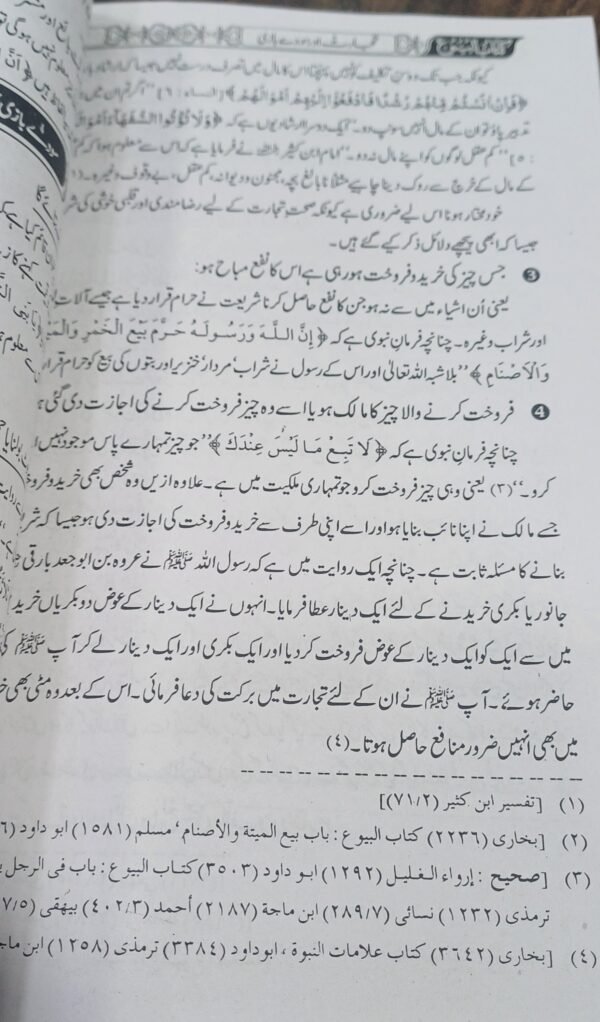 کتاب البیوع
﴿فَاِنْ اٰنَسْتُمْ مِّنْهُمْ رُشْدًا فَادْفَعُوْٓا اِلَيْهِمْ اَمْوَالَهُمْ﴾ [النساء : ٦] ”اگر تم ان میں
تدبیر پاؤ تو ان کے مال انہیں سونپ دو۔“ ایک دوسرا ارشاد یوں ہے کہ ﴿وَلَا تُؤْتُوا السُّفَهَآءَ اَمْوَا
: ٥] ”کم عقل لوگوں کو اپنے مال نہ دو۔“ امام ابن کثیر نے فرمایا ہے کہ اس سے معلوم ہوا کہ کم
کے مال کے خرچ سے روک دینا چاہیے مثلاً نابالغ بچہ، مجنون و دیوانہ، کم عقل، بے وقوف وغیرہ۔
خود مختار ہونا اس لیے ضروری ہے کیونکہ صحت تجارت کے لیے رضامندی اور قلبی خوشی کی شر
جیسا کہ ابھی پیچھے دلائل ذکر کیے گئے ہیں۔
❸ جس چیز کی خرید و فروخت ہو رہی ہے اس کا نفع مباح ہو:
یعنی اُن اشیاء میں سے نہ ہو جن کا نفع حاصل کرنا شریعت نے حرام قرار دیا ہے جیسے آلات
اور شراب وغیرہ۔ چنانچہ فرمان نبوی ہے کہ ﴿إِنَّ اللّٰهَ وَرَسُولَهُ حَرَّمَ بَيْعَ الْخَمْرِ وَالْمَيْ
وَالْأَصْنَامِ﴾ ”بلاشبہ اللہ تعالیٰ اور اس کے رسول نے شراب‘ مردار‘ خنزیر اور بتوں کی بیع کو حرام قرار
❹ فروخت کرنے والا چیز کا مالک ہو یا اسے وہ چیز فروخت کرنے کی اجازت دی گئی ہ
چنانچہ فرمان نبوی ہے کہ ﴿لَا تَبِعْ مَا لَيْسَ عِنْدَكَ﴾ ”جو چیز تمہارے پاس موجود نہیں ا
کرو۔“ (٣) یعنی وہی چیز فروخت کرو جو تمہاری ملکیت میں ہے۔ علاوہ ازیں وہ شخص بھی خرید و فروخ
جسے مالک نے اپنا نائب بنایا ہو اور اسے اپنی طرف سے خرید و فروخت کی اجازت دی ہو جیسا کہ شر
بنانے کا مسئلہ ثابت ہے۔ چنانچہ ایک روایت میں ہے کہ رسول اللہ ﷺ نے عروہ بن ابو جعد بارقی
جانور یا بکری خریدنے کے لئے ایک دینار عطا فرمایا۔ انہوں نے ایک دینار کے عوض دو بکریاں خرید
میں سے ایک کو ایک دینار کے عوض فروخت کر دیا اور ایک بکری اور ایک دینار لے کر آپ ﷺ کی
حاضر ہوئے۔ آپ ﷺ نے ان کے لئے تجارت میں برکت کی دعا فرمائی۔ اس کے بعد وہ مٹی بھی خ
میں بھی انہیں ضرور منافع حاصل ہوتا۔ (٤)
(١) [تفسیر ابن کثیر (٧١/٢)]
(٢) [بخاری (٢٢٣٦) کتاب البیوع : باب بیع المیتة والأصنام‘ مسلم (١٥٨١) ابو داود (
(٣) [صحیح : إرواء الغلیل (١٢٩٢) ابو داود (٣٥٠٣) کتاب البیوع : باب فی الرجل
ترمذی (١٢٣٢) نسائی (٢٨٩/٧) ابن ماجة (٢١٨٧) أحمد (٤٠٢/٣) بیهقی (
(٤) [بخاری (٣٦٤٢) کتاب علامات النبوة ، ابوداود (٣٣٨٤) ترمذی (١٢٥٨) ابن ماج